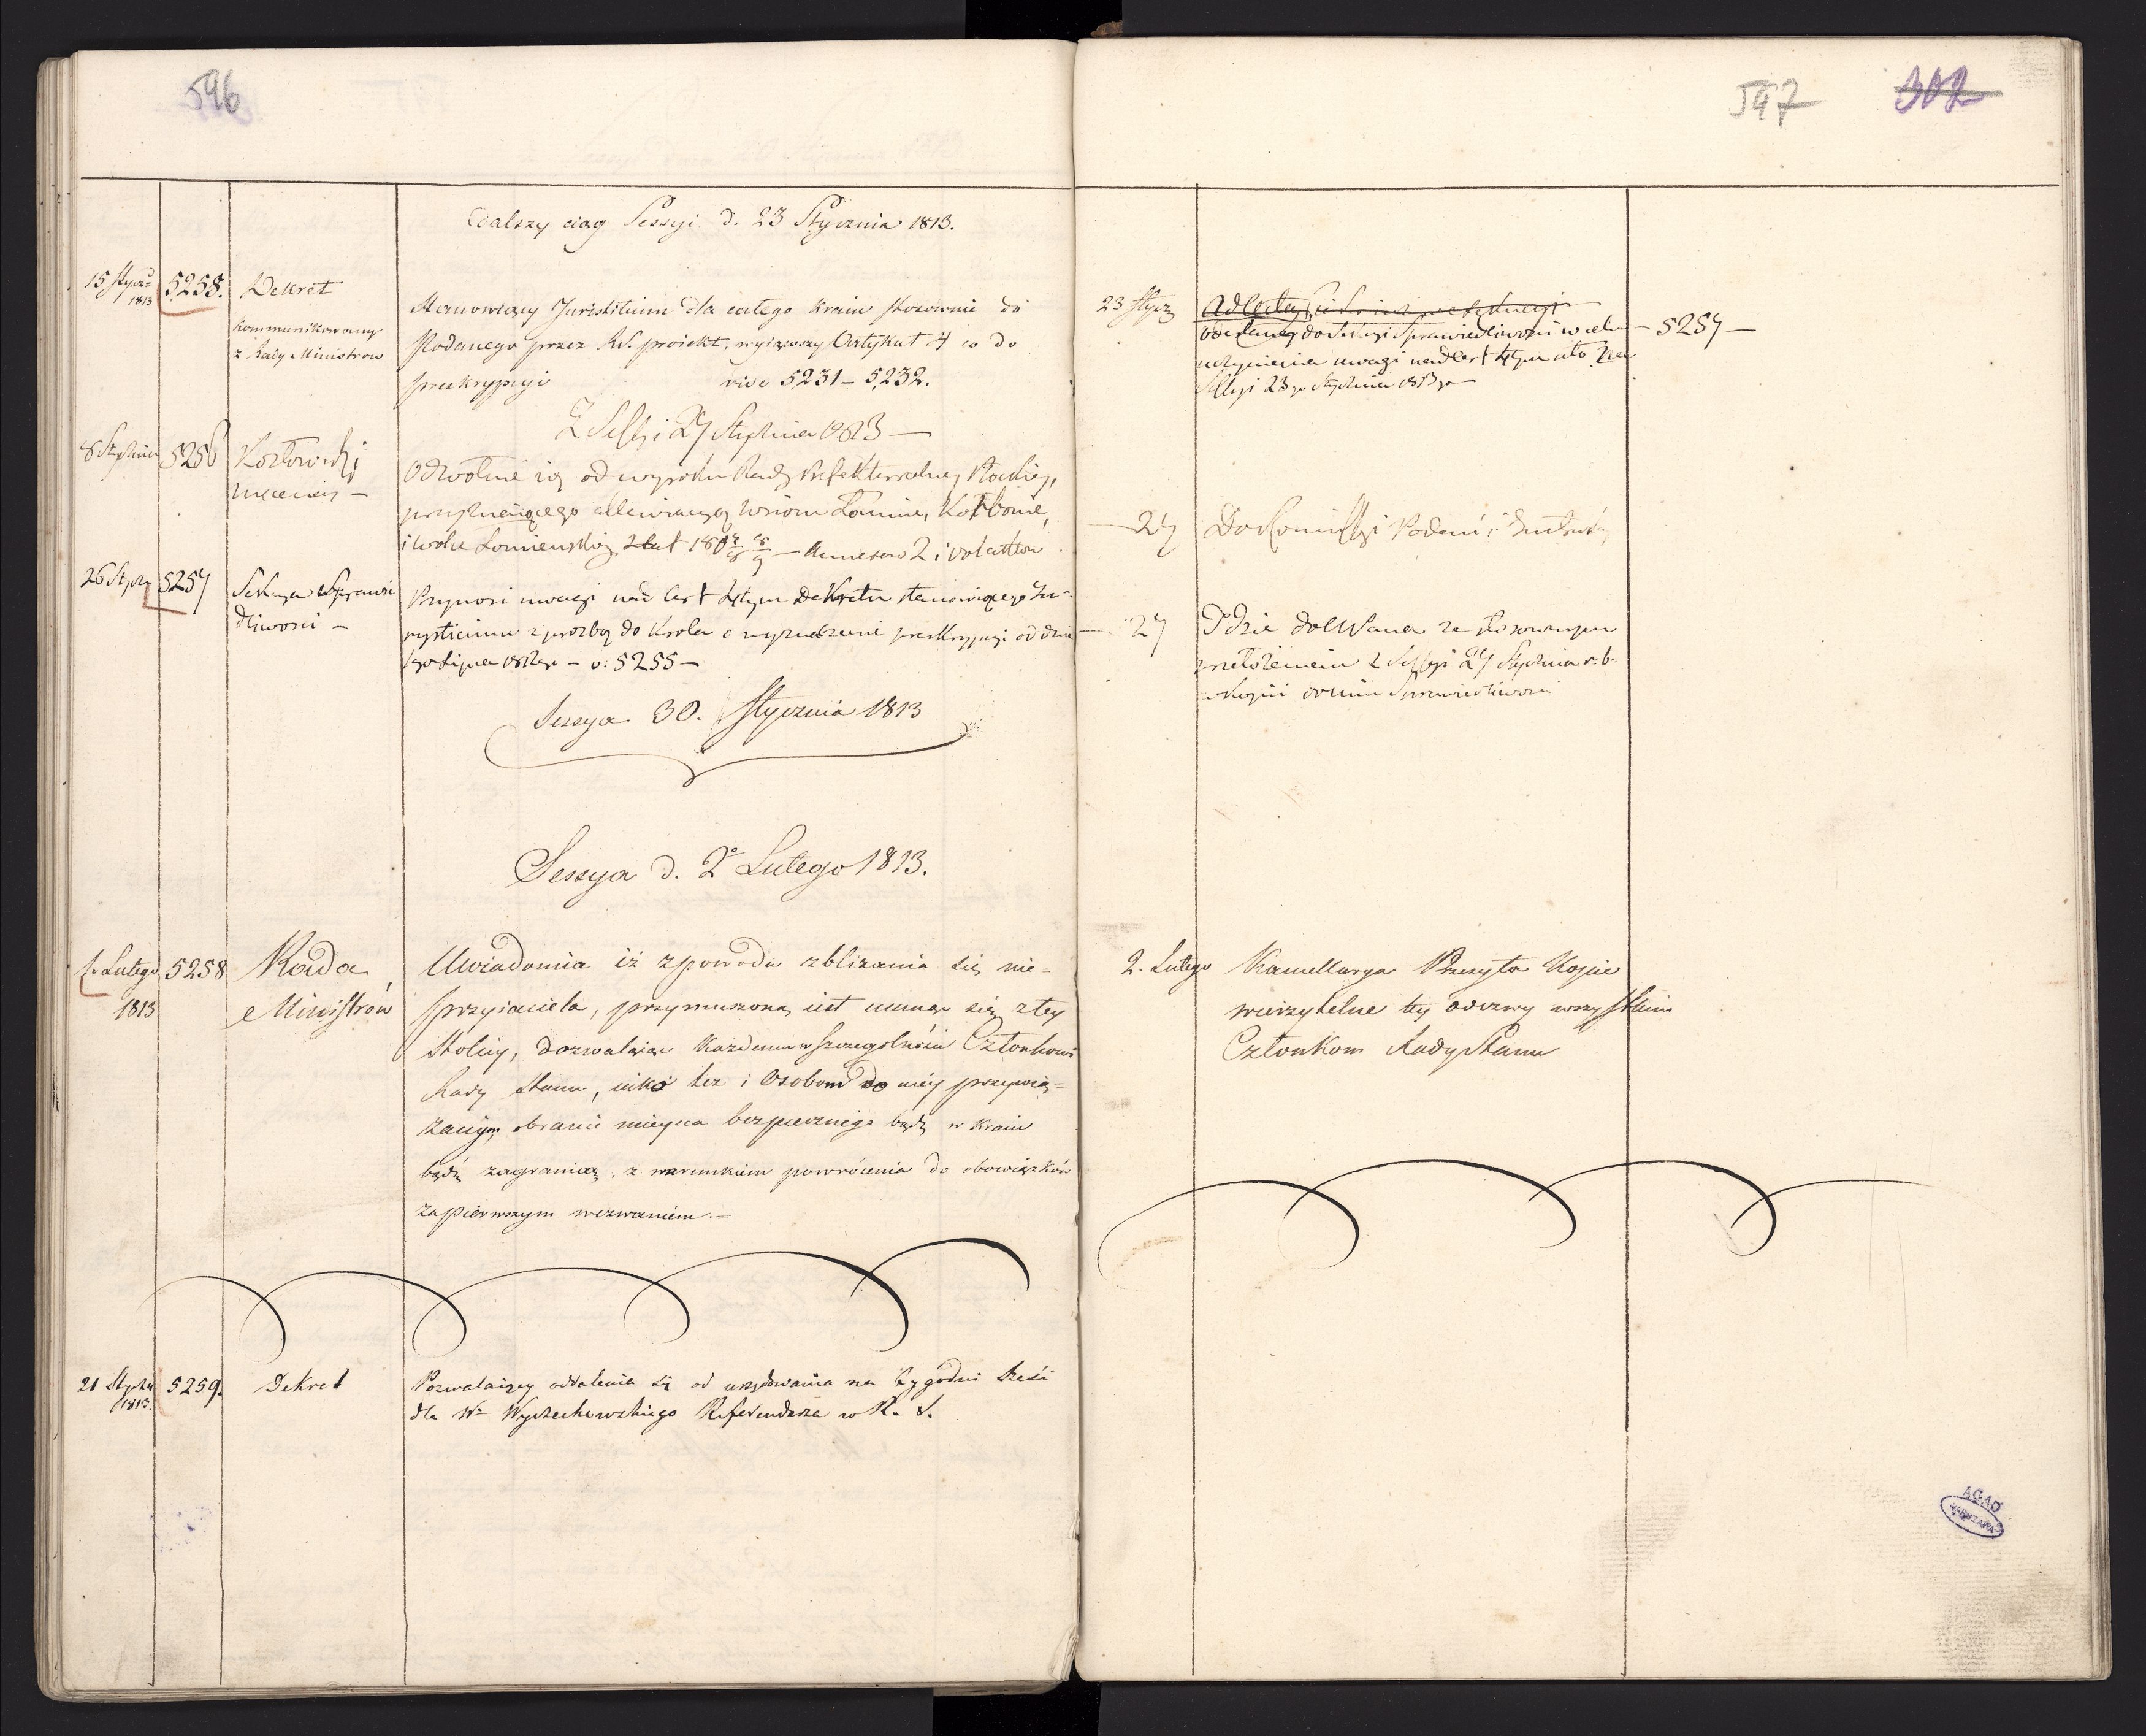 596
Dalszy ciąg Sessyi d. 23 Stycznia 1813.
15 Stycz:
1813
5258.
Dekret
kommunikowany
z Rady Ministrow
Stanowiący Juristitium dla całego kraiu stosownie do
podanego przez R.S. proiekt, wyiąwszy Artykuł 4 co do
preskrypcyi vide 5231 – 5232.
Z Sessyi 27 Stycznia 1813 —
8 Stycznia
5256
Kozłowski
Odwołuie się od wyroku Rady Prefekturalney Płockiey,
5257
Sekcya Sprawie
dliwości –
Przynosi uwagi nad Art 4tym Dekretu stanowiącego Ju-
risticium z prozbą do Krola o wyznaczenie preskrypcyi od dnia
– v: 5255 –
Sessya 30. Stycznia 1813
Sessya d. 2º Lutego 1813.
1. Lutego
1813
5258
Rada
Ministrów
Uwiadomia iż z powodu zbliżania się nie=
przyiaciela, przymuszoną iest usunąc się z tey
Stolicy, dozwalaiąc każdemu w szczególności Członkowi
Rady Stanu, iako też i Osobom do niey przywią=
zanym obranie mieysca bezpiecznego bądź w kraiu
bądź zagranicą, z warunkiem powrócenia do obowiązków
za pierwszym wezwaniem. –
21 Stycz
1813.
5259.
Dekret
Pozwalaiący oddalenia się od urzędowania na tygodni sześć
dla Wo Wyczechowskiego Referendarza w R. S.
597
302
23 Stycz
do Sekcyi Sprawiedliwości w celu
uczynienia uwagi nad Art 4tym
Sessyi 23go Stycznia 1813 –
– 5257 –
27
Do Kommissyi Podań i
27
Idzie do Króla ze stosownym
przełożeniem z Sessyi 27 Stycznia r. b.
2. Lutego
Kancellarya Przesyła Kopie
wierzytelne tey odezwy wszystkim
Członkom Rady Stanu
AGAD
WARSZAWA